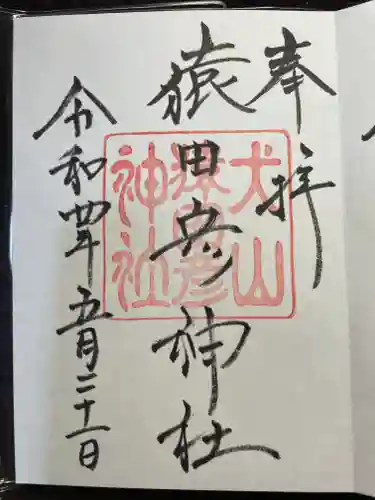 奉拝
猿田彦神社
令和四年五月二十一日
犬山
猿田彦
神社